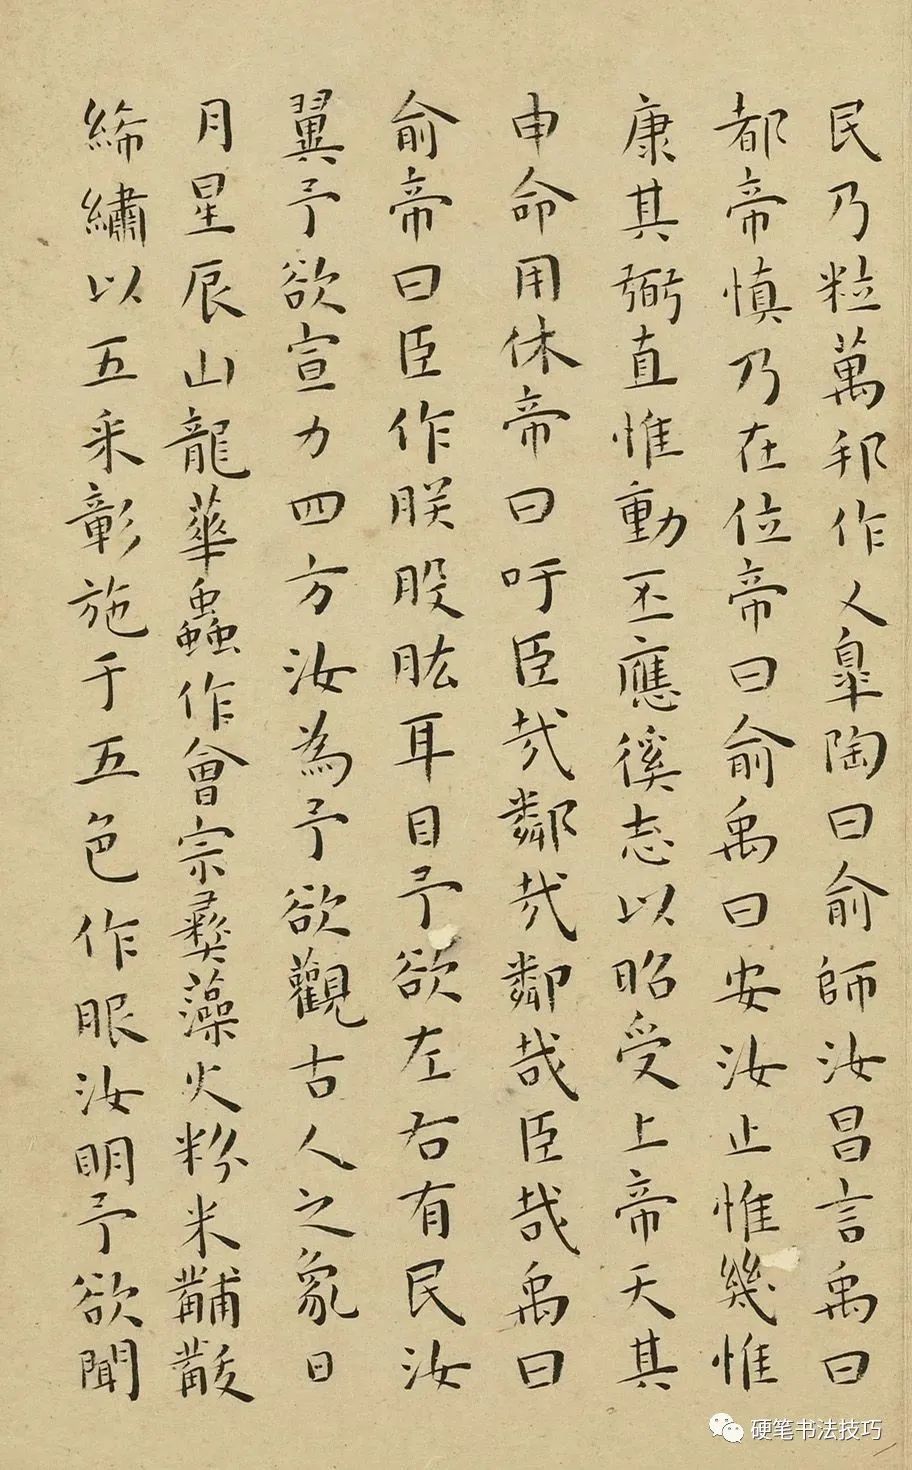 民乃粒萬邦作乂皐陶曰俞師汝昌言禹曰
都帝慎乃在位帝曰俞禹曰安汝止惟幾惟
康其弼直惟動丕應徯志以昭受上帝天其
申命用休帝曰吁臣哉鄰哉鄰哉臣哉禹曰
俞帝曰臣作朕股肱耳目予欲左右有民汝
翼予欲宣力四方汝為予欲觀古人之象日
月星辰山龍華蟲作會宗彝藻火粉米黼黻
絺繡以五采彰施于五色作服汝明予欲聞
硬笔书法技巧